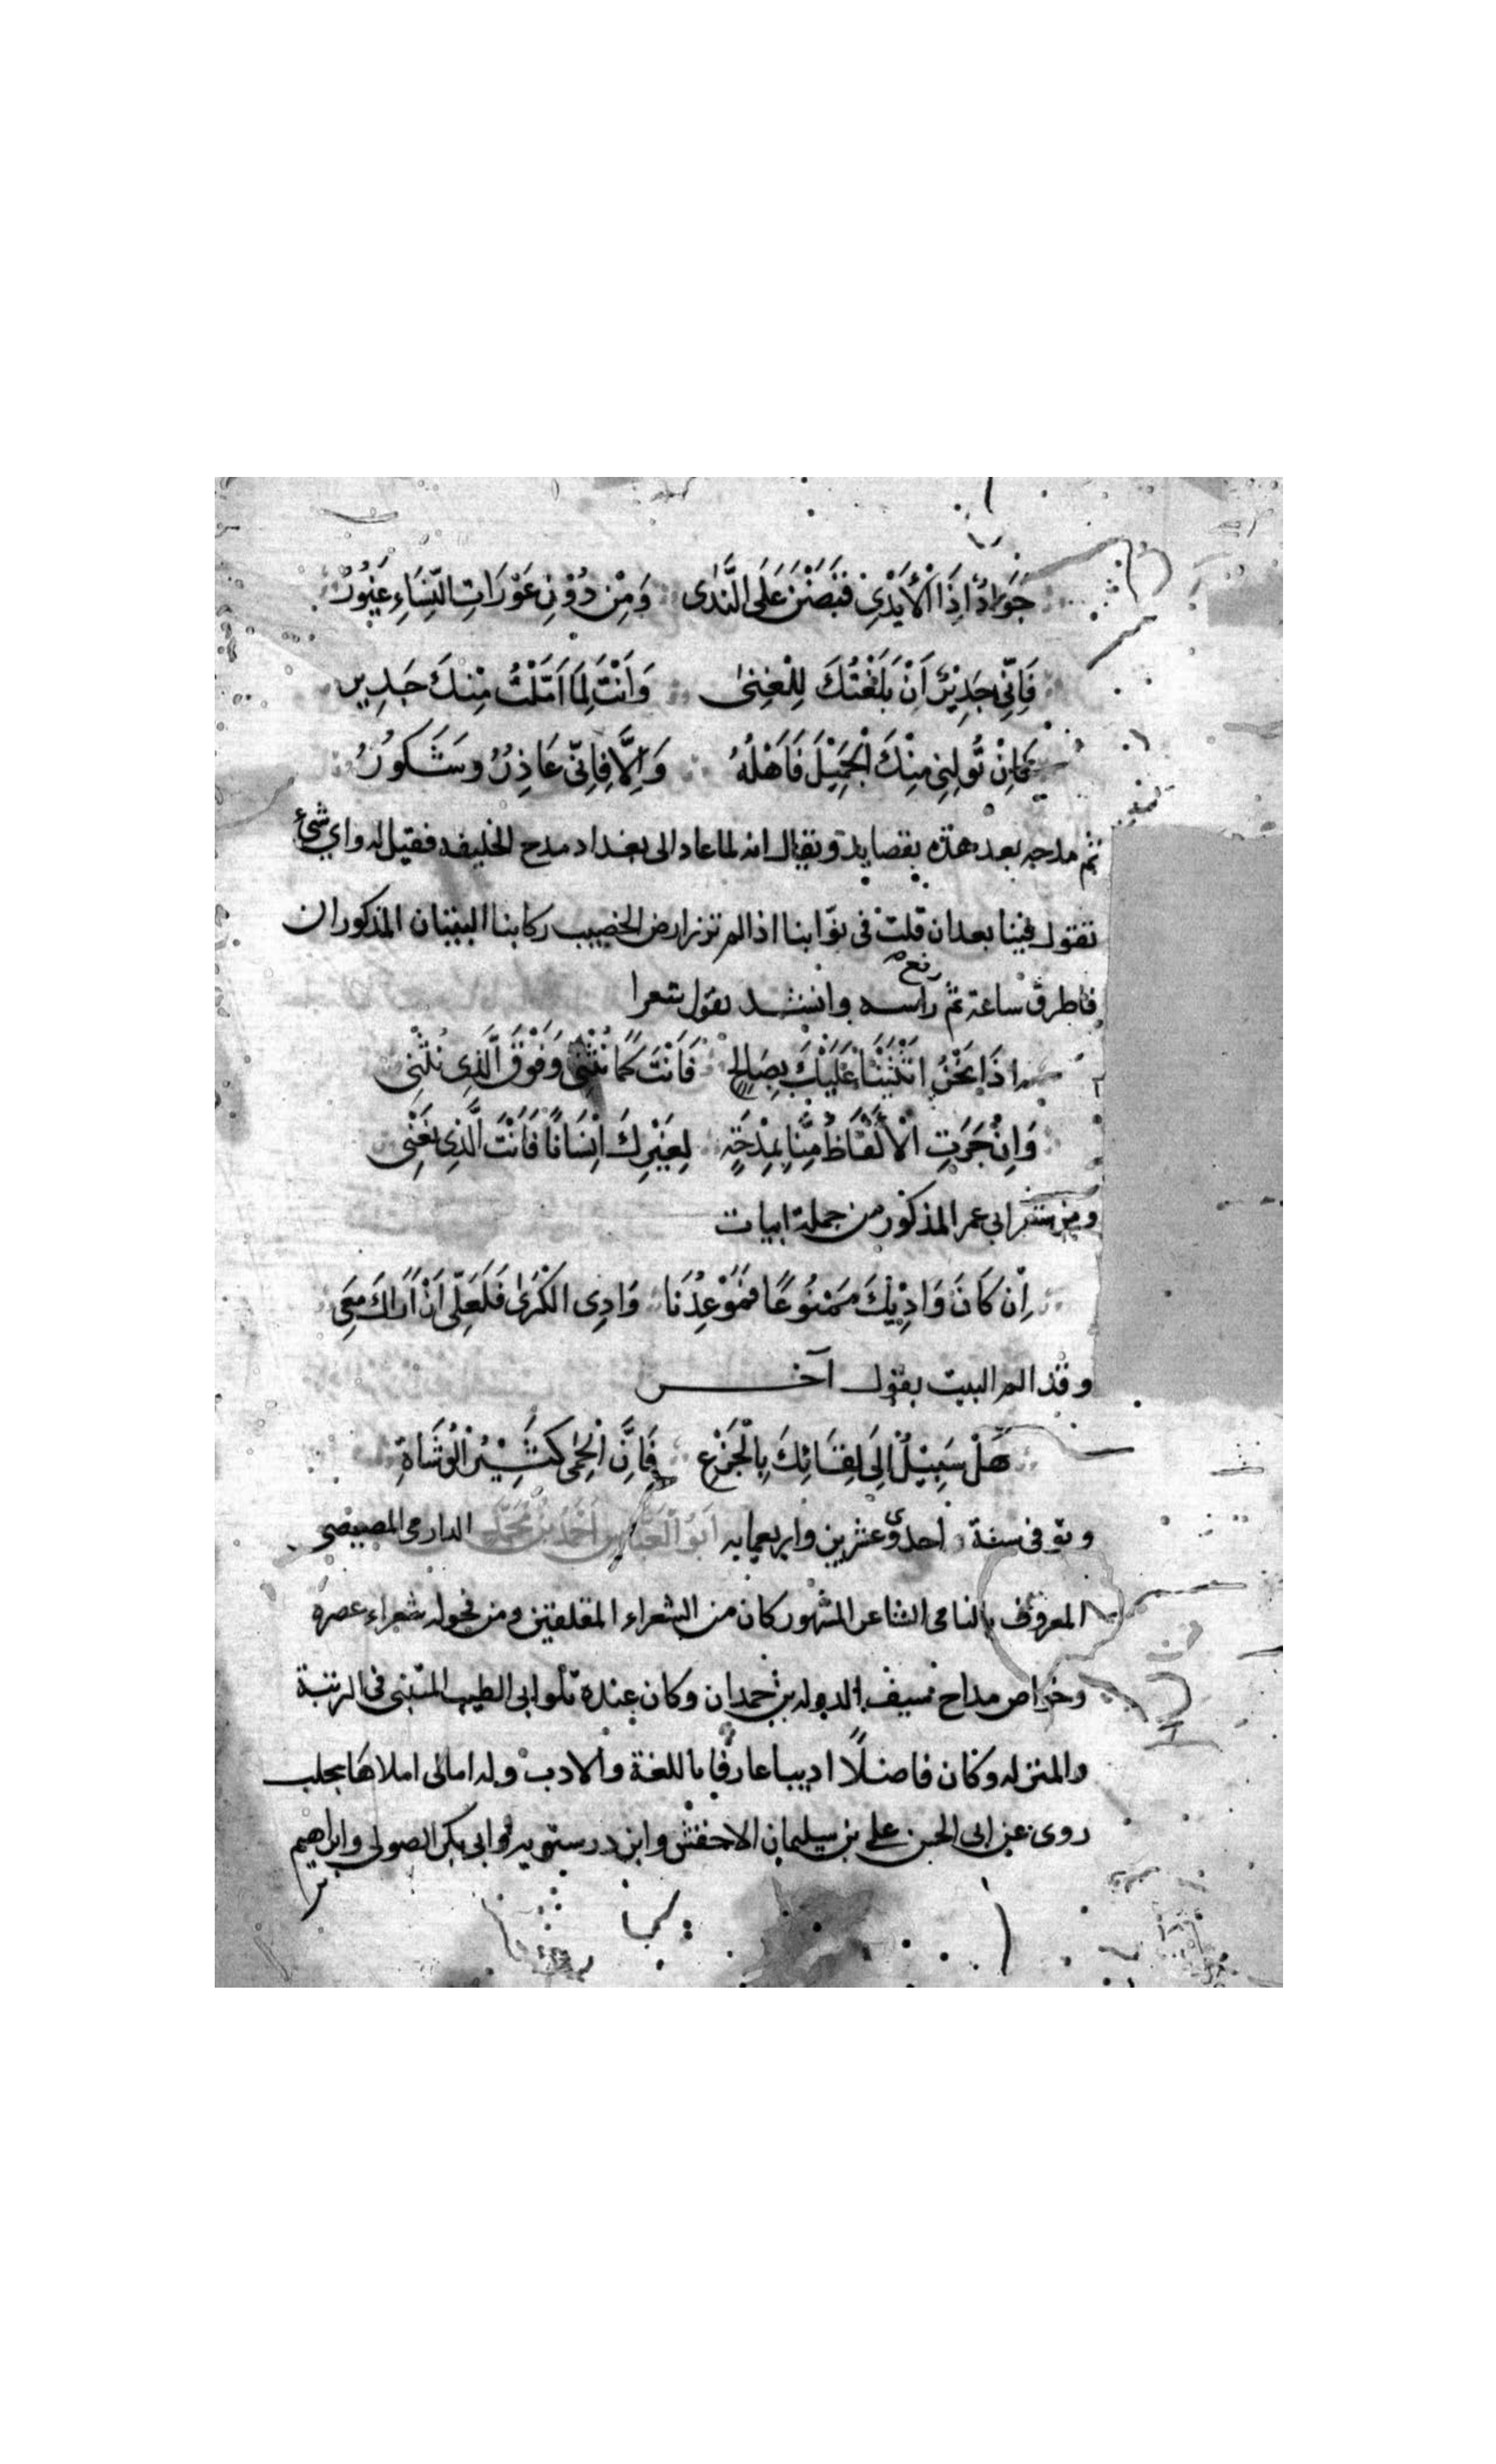 جَوَادٌ اِذَا الْأَيْدِي قَبَضْنَ عَلَى النَّدٰى وَمِنْ دُوْنِ عَوْرَاتِ النِّسَاءِ غَيُورُ
فَاِنِّي جَدِيْرٌ اَنْ بَلَغْتُكَ لِلْغِنىٰ وَاَنْتَ لِمَا اَمَّلْتُ مِنْكَ جَدِيرِ
فَاِنْ تُولِنِي مِنْكَ الْجَمِيْلَ فَاَهْلُهُ وَاِلَّا فَاِنِّي عَاذِرٌ وَشَكُورُ
ثم مدحه بعد هذه بقصايد ويقال انه لما عاد الى بغداد مدح الخليفه فقيل له واي شئ
تقول فينا بعد ان قلت في نوابنا اذا لم تزر ارض الخصيب ركابنا البيتان المذكوران
فاطرق ساعة ثم رفع راسه وانشد يقول شعرا
اِذَا نَحْنُ اثْنَيْنَا عَلَيْكَ بِصَالِحٍ فَاَنْتَ كَمَا نُثْنِي وَفَوْقَ الَّذِي نُثْنِي
وَاِنْ جَرَتِ الْأَلْفَاظُ مِنَّا بِمِدْحَةٍ لِغَيْرِكَ اِنْسَانًا فَاَنْتَ الَّذِي نَعْنِي
ومن شعر ابي عمر المذكور من جملة ابيات
اِنْ كَانَ وَادِيْكَ مَمْنُوعًا فَمَوْعِدُنَا وَادِي الْكَرٰى فَلَعَلِّي اَنْ اَرَاكَ مَعِي
وقد الم البيت بقول آخر
هَلْ سَبِيْلٌ اِلَى لِقَائِكَ بِالْجَزْعِ فَاِنَّ الْحِمٰى كَثِيْرُ الْوُشَاةِ
وتوفى سنة احدى وعشرين واربعمايه اَبُو الْعَبَّاسِ اَحْمَدُ بْنُ مُحَمَّدٍ الدارمى المصيصى
المعروف بالنامى الشاعر المشهور كان من الشعراء المفلقين ومن فحوله شعراء عصره
وخواص مداح سيف الدوله بن حمدان وكان عنده تلو ابى الطيب المتنبى فى الرتبة
والمنزله وكان فاضلًا اديبا عارفًا باللغة والادب وله امالى املاها بحلب
روى عن ابى الحسن على بن سليمان الاخفش وابن درستويه وابى بكر الصولى وابراهيم